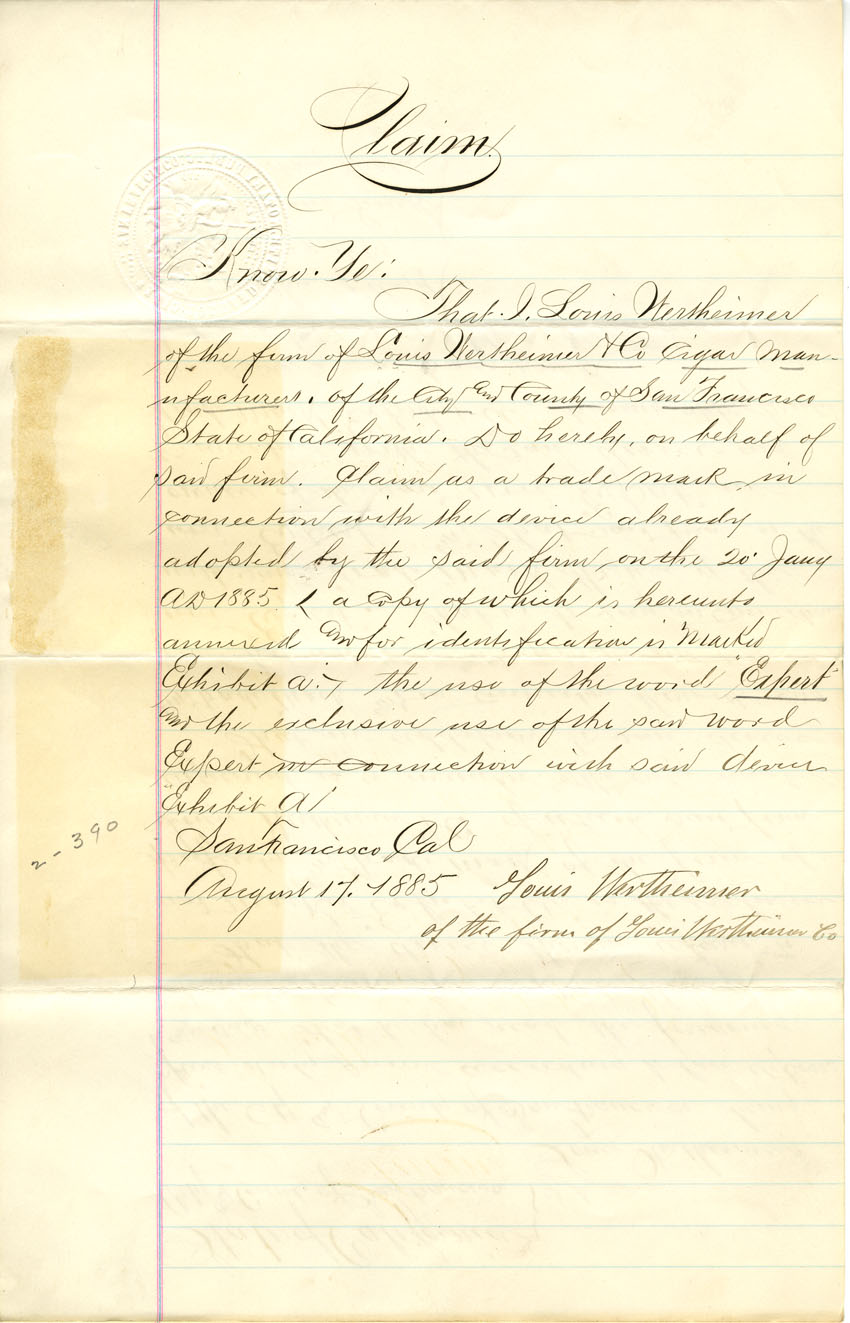 Claim.
Know. Ye:
That. I. Louis Wertheimer
of the firm of Louis Wertheimer & Co Cigar Man-
ufacturers. of the City and County of San Francisco
State of California. Do hereby, on behalf of
said firm. Claim as a trade mark in
connection with the device already
adopted by the said firm, on the 20 Jany
AD 1885. ( a copy of which is hereunto
annexed and for identification is Marked
Exhibit A.) the use of the word "Expert"
and the exclusive use of the said word
Expert in connection with said device
"Exhibit A"
San Francisco Cal
August 17. 1885 Louis Wertheimer
of the firm of Louis Wertheimer Co
2-390